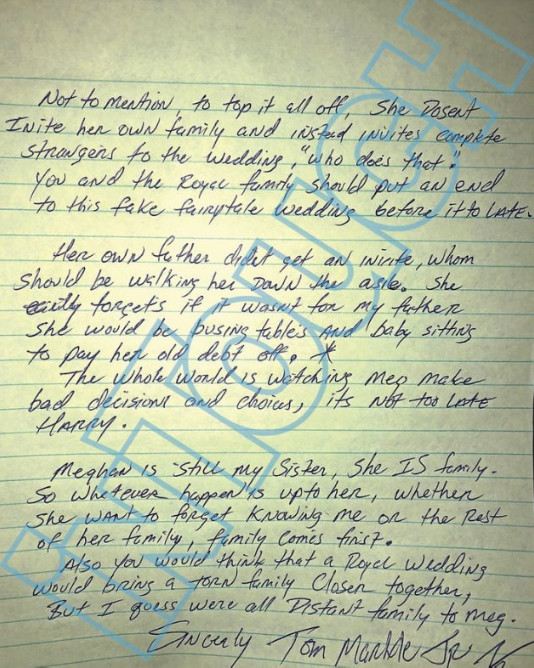 Not to mention, to top it all off, She Dosent
Inite her own family and insted invites complete
strangers to the wedding, "who does that."
You and the Royal family should put an end
to this fake fairytale wedding before it to LATE.
Her own father didnt get an invite, whom
should be walking her Down the asle. She
forgets if it wasnt for my father
She would be busing tables AND baby sitting
to pay her old debt off. *
The whole world is watching Meg make
bad decisions and choices, its NOT too LATE
HARRY.
Meghan is still my Sister, She IS family.
So whatever happen is up to her, whether
she WANT to forget KNOWing me or the Rest
of her family, family comes first.
Also you would think that a Royal wedding
would bring a torn family Closer together,
But I guess were all Distant family to Meg.
Sincerly Tom Markle Jr
INTOUCH